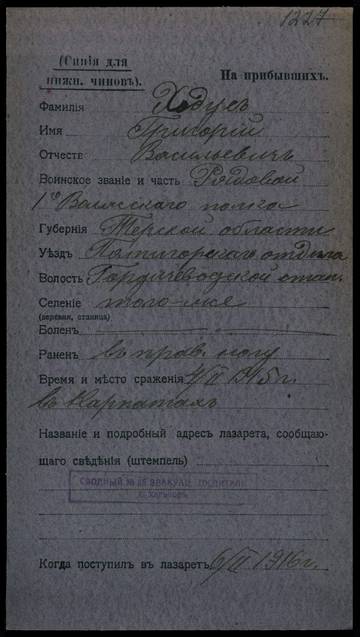 1227
(Синія для
нижн. чиновъ).
На прибывшихъ.
Фамилія Ходусъ
Имя Григорій
Отчеств Васильевичъ
Воинское званіе и часть Рядовой
1го Волжского полка
Губернія Терской области
Уѣздъ Пятигорского отдѣла
Волость Горячеводской стан.
Селеніе того-же
(деревня, станица)
Боленъ
Раненъ въ прав. ногу
Время и мѣсто сраженія 4/II 1915 г.
въ Карпатахъ
Названіе и подробный адресъ лазарета, сообщаю-
щаго свѣдѣнія (штемпель)
СВОДНЫЙ № ЭВАКУАЦ. ГОСПИТАЛЬ
г. ХАРЬКОВЪ
Когда поступилъ въ лазаретъ 6/II 1916 г.